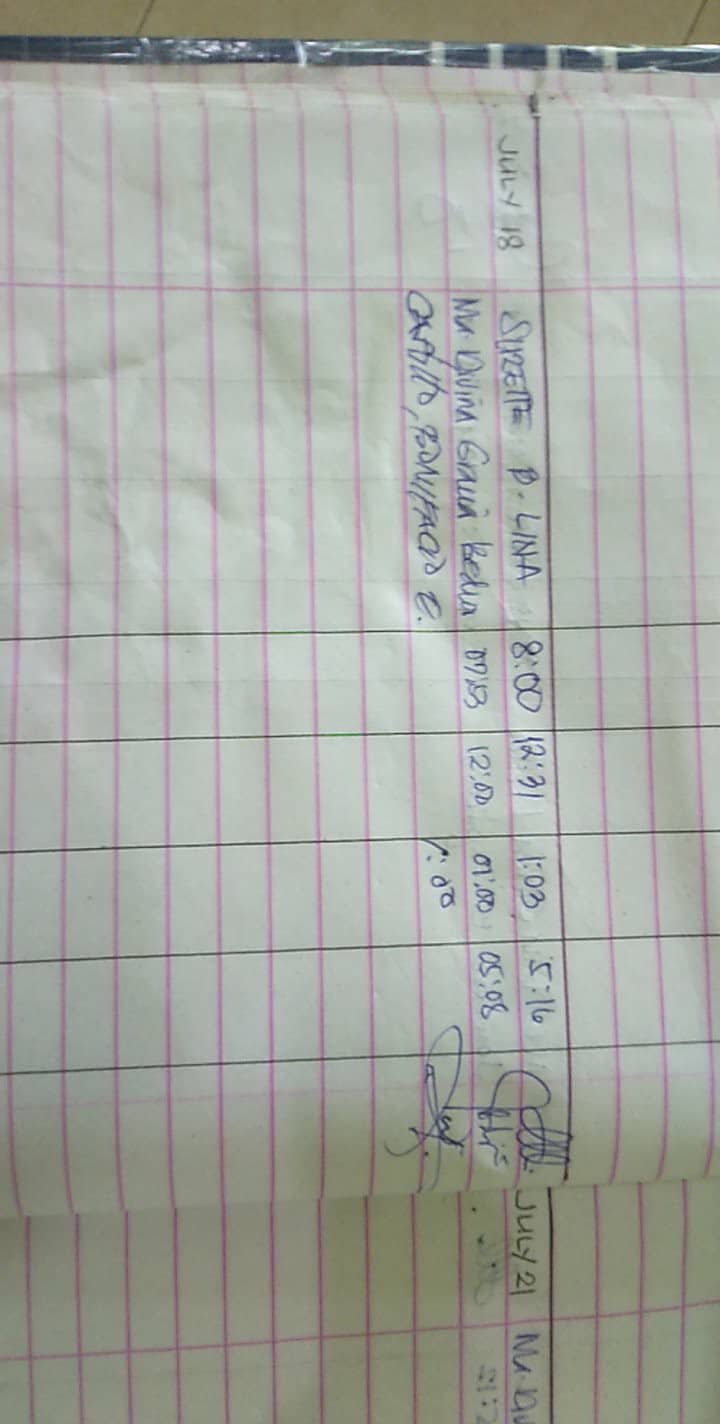 JULY 18 SUZETTE B. LINA 8:00 12:31 1:03 5:16
Ma. Divina Gracia Bedia 07:53 12:00 01:00 05:08
CASTILLO, BONIFACIO C. 1:00
JULY 21 Ma. Div